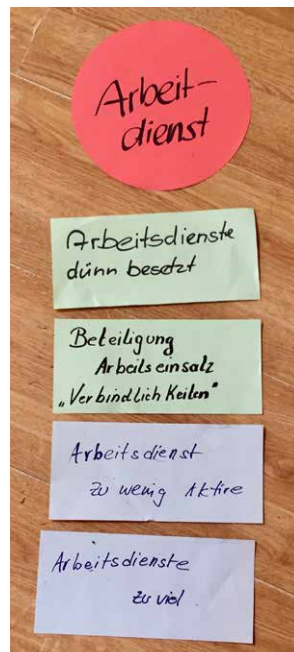 Arbeit-
dienst
Arbeitsdienste
dünn besetzt
Beteiligung
Arbeitseinsatz
„Verbindlichkeiten"
Arbeitsdienst
zu wenig Aktive
Arbeitsdienste
zu viel